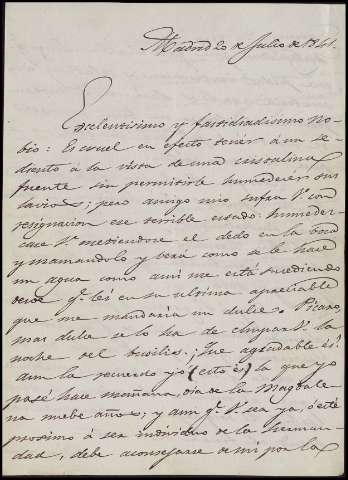 Madrid 20 de Julio de 1841.
Escelentisimo y fastidiadisimo No-
bio: Es cruel en efecto tener á un se-
diento á la vista de una cristalina
fuente sin permitirle humedecer sus
lavios; pero amigo mio sufra V. con
resignacion ese terrible estado: humedez-
case V. metiendose el dedo en la boca
y mamandolo y verá como se le hace
un agua como a mi me está sucediendo
desde q.e leí en su ultima apreciable
que me mandaria un dulce. Picaro,
mas dulce se lo ha de chupar V. la
noche del busilis. ¡Que agradable es!
aun la recuerdo yo (esto es) la que yo
pasé hace mañana, dia de la Magdale-
na nuebe años; y aun q.e V. sea ya, ó esté
proximo á ser individuo de la herman-
dad, debe aconsejarse de mi por la